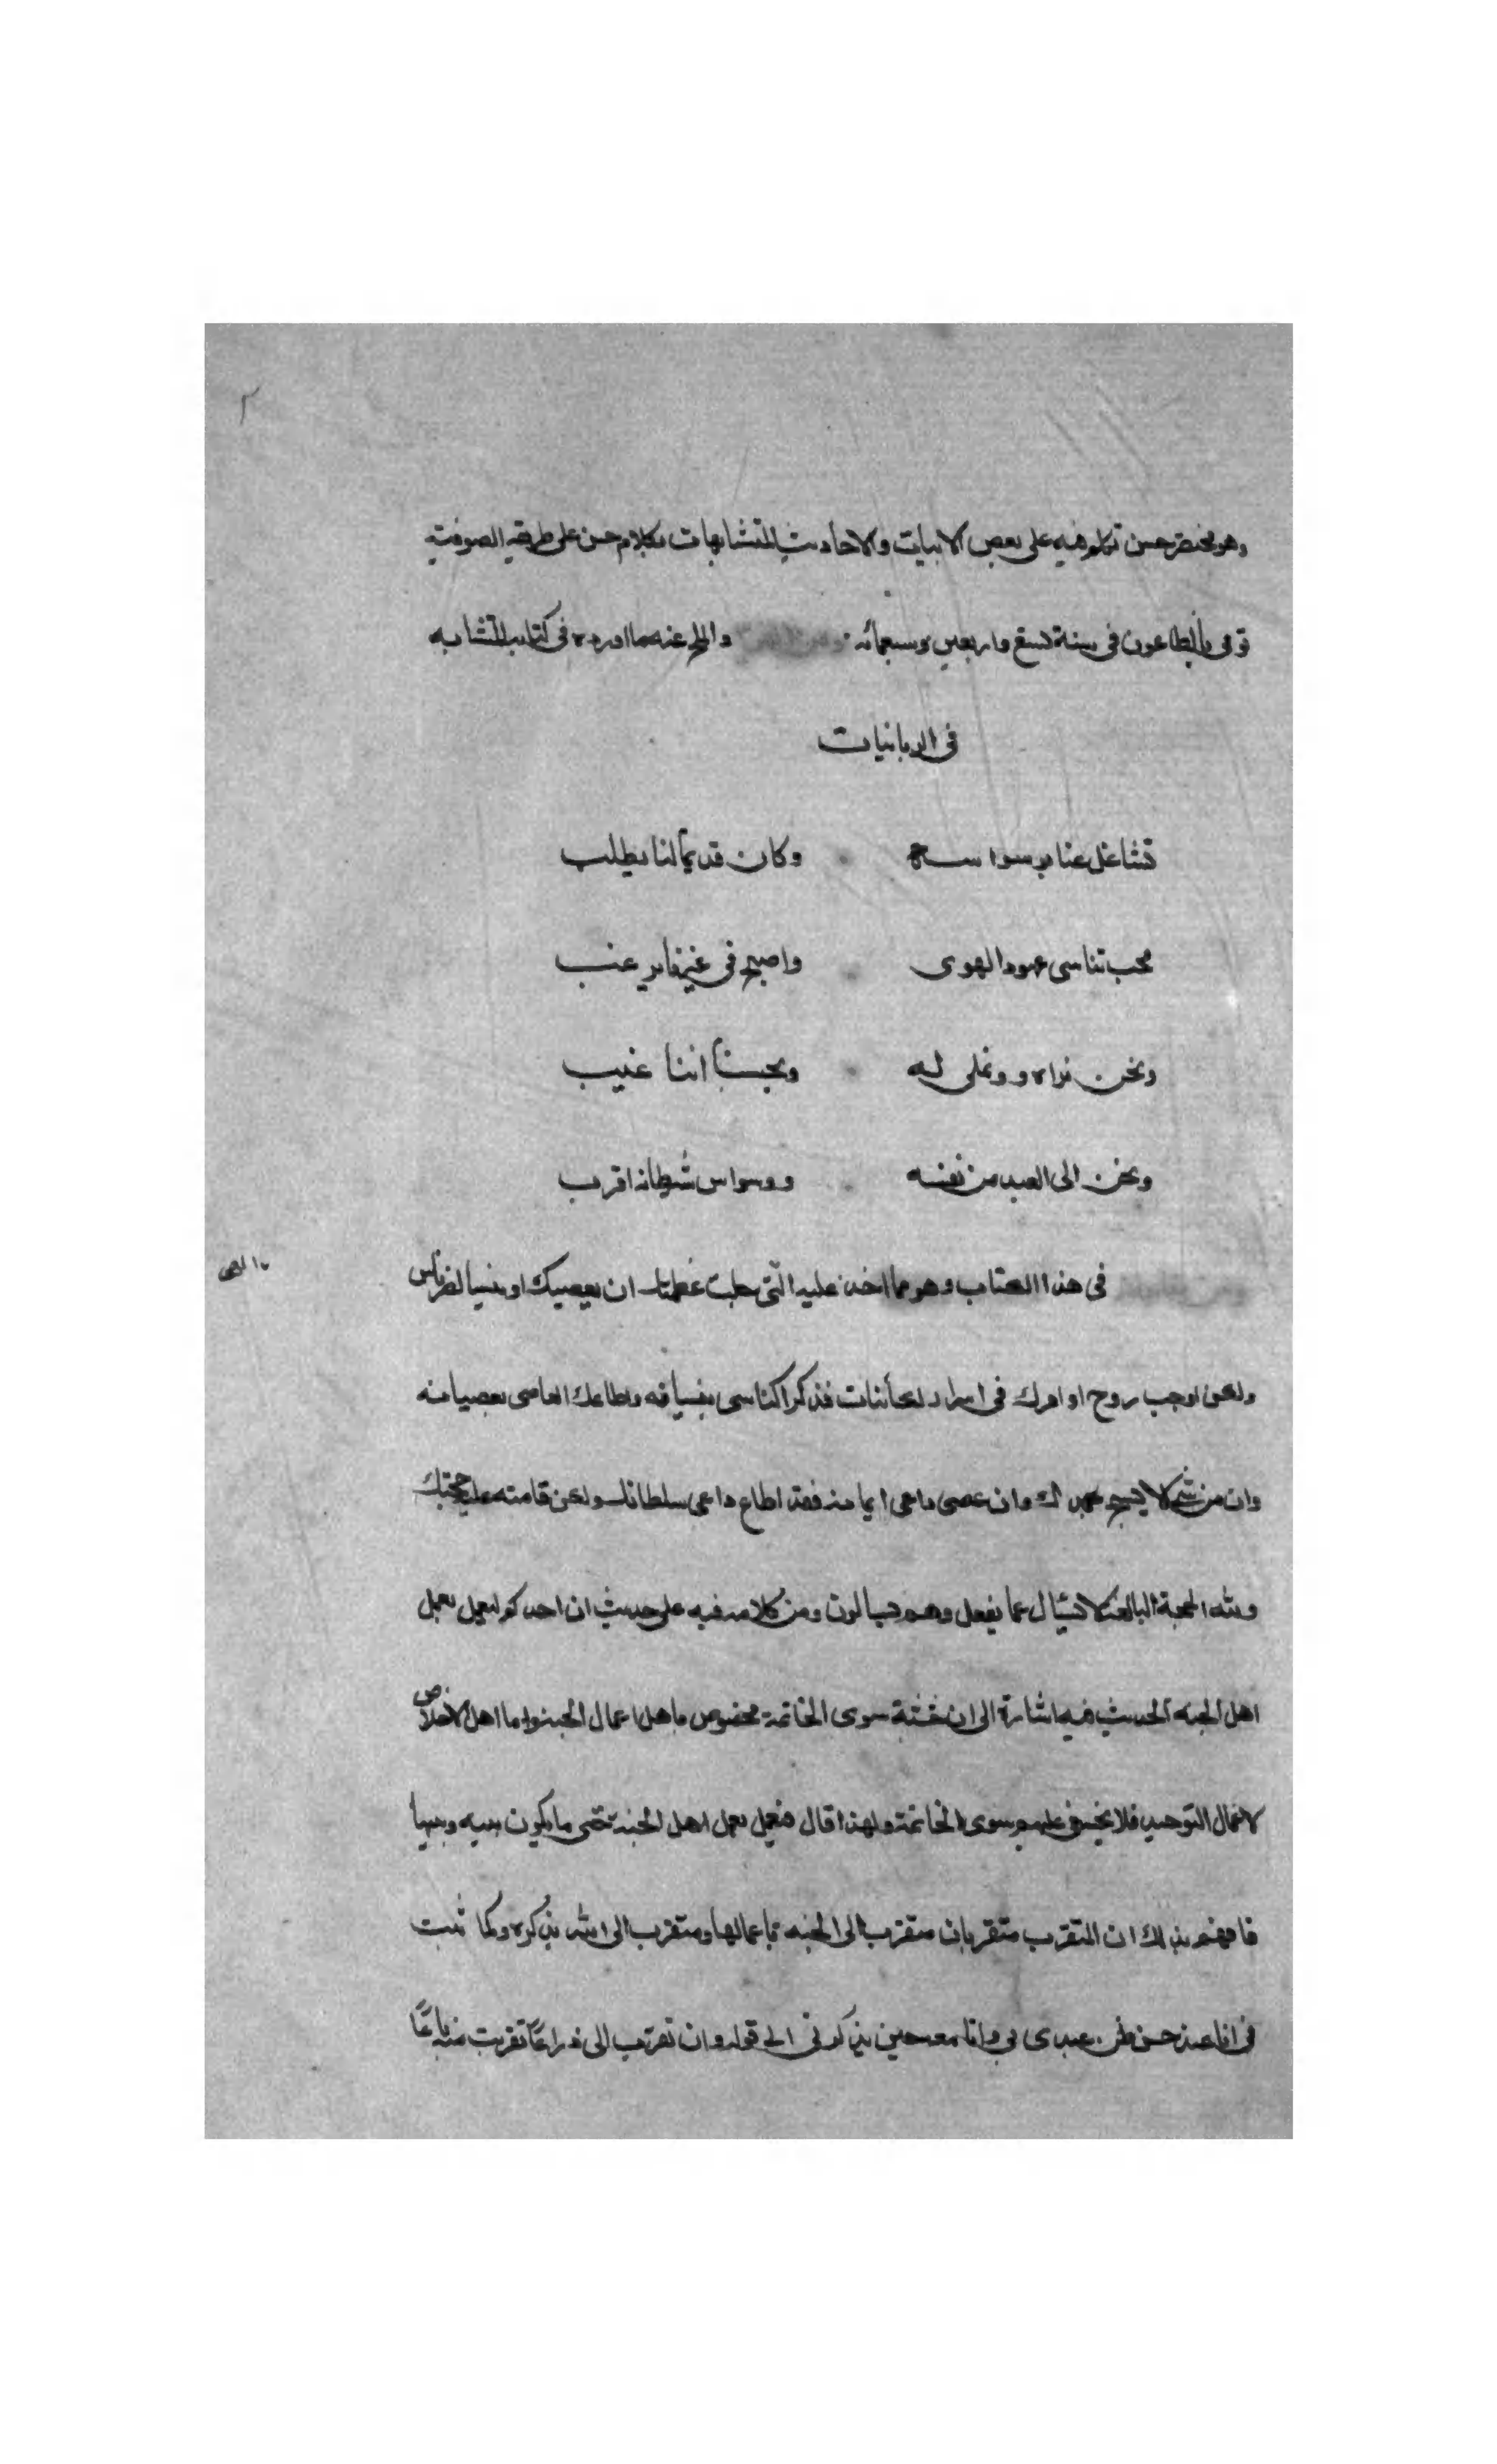 ٢
وهو مختصر حسن تكلم فيه على بعض الايات والاحاديث المتشابهات بكلام حسن على طريقة الصوفية
توفى بالطاعون فى سنة تسع واربعين وسبعمائه والملح عنه مما اورده فى كتاب المتشابه
فى الربانيات
تشاغل عنا بوسواسه وكان قديما لنا يطلب
محب تناسى عهود الهوى واصبح فى غيرنا يرغب
ونحن نراه و ونملى له ويحسبنا اننا غيب
ونحن الى العبد من نفسه ووسواس شيطانه اقرب
فى هذا الكتاب وهو مما اخذ عليه الهى جلت عظمتك ان يعصيك او ينسى الناس
الهى
ولكن اوجب روح اوامرك فى اسرار الكائنات فذكرك الناسى بنسيانه واطاعك العاصى بعصيانه
وان من شئ الا يسبح بحمدك وان عصى داعى ايمانه فقد اطاع داعى سلطانك ولكن قامت عليه حجتك
ولله الحجة البالغة لا يسال عما يفعل وهم يسالون ومن كلامه فيه على حديث ان احدكم ليعمل بعمل
اهل الجنه الحديث فيه اشارة الى ان خشية سوى الخاتمة مخصوص باهل اعمال الجنة واما اهل الاخلاص
لاعمال التوحيد فلا يخشى عليهم سوى الخاتمة ولهذا قال فيعمل بعمل اهل الجنة حتى ما يكون بينه وبينها
فافهم بذلك ان المتقرب متقربان متقرب الى الجنه باعمالها ومتقرب الى الله بذكره وكما ثبت
فى انا عند حسن ظن عبدى بى وانا معه حين يذكرنى الى قوله وان تقرب الى ذراعًا تقربت منه باعًا